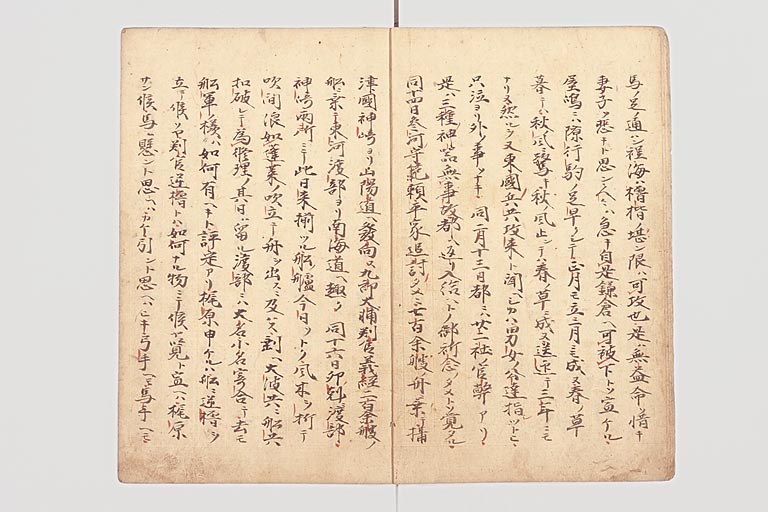 馬ノ足ノ通ン程海ハ櫓楷ノ堪ン限ハ可攻也是ハ無益命ノ惜キ
妻子ノ悲キト思ン人々ハ急キ自是鎌倉ヘ可被下トソ宣ケル
屋嶋ニハ隙行駒ノ足早クシテ正月モ立二月ニモ成ヌ春ノ草
暮テハ秋ノ風ニ驚キ秋ノ風止ンテハ春ノ草ニ成ヌ送迎テ三年ニモ
ナリヌ然ルヲ又東國兵共攻来ト聞ヘシカハ男女公達指ツトヒ
只泣ヨリ外ノ事ソナキ同二月十三日都ニハ廿二社ノ官幣アリ
是ハ三種神器無事故都ヘ返リ入給ヘトノ御祈念ノタメトソ覚タル
同十四日参河守範頼平家追討ノタメニ七百余艘舟ニ乗テ攝
津國神崎ヨリ山陽道ヘ發向ス九郎大輔判官義経二百余艘ノ
船ニ乗テ東河渡部ヨリ南海道ヘ趣ク同十六日卯剋渡部
神崎両所ニテ此日来揃ツル船艫今日ソトク風木ヲ折テ
吹間浪如蓬莱ノ吹立テ舟ヲ出スニ及ハス剰ヘ大波共ニ船共
扣破レテ為修理ノ其日ハ留ル渡部ニハ大名小名寄合テ去モ
船軍ノ様ハ如何有ヘキト評定アリ梶原申ケルハ船ニ逆櫓ヲ
立テ候ハヤ判官逆櫓トハ如何ナル物ニテ候ソ覚ト宣ヘハ梶原
サン候馬ハ懸ント思ヘハカケ引ント思ヘハヒキ弓手ヘモ馬手ヘモ